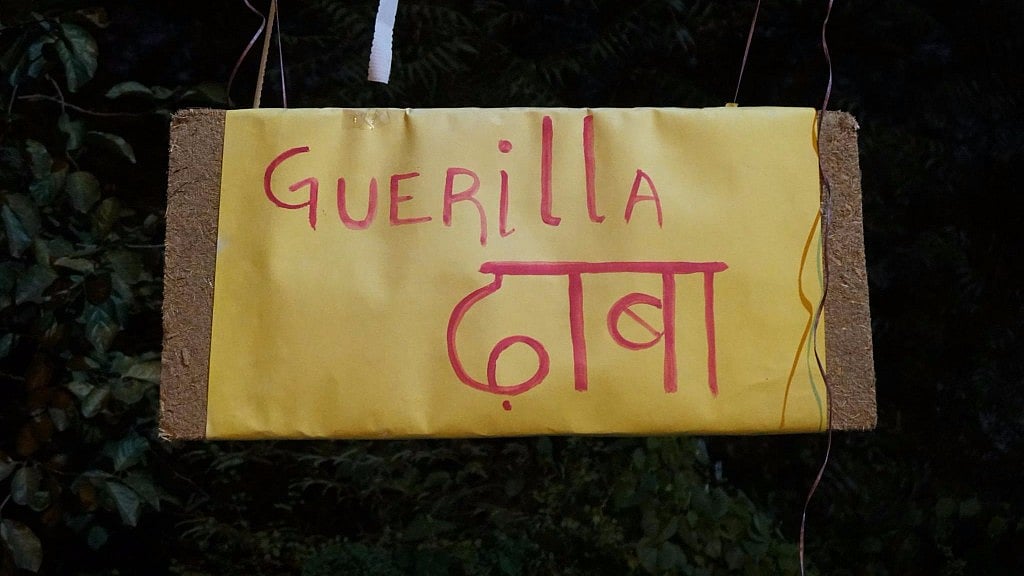 GUERillA
ढ़ाबा